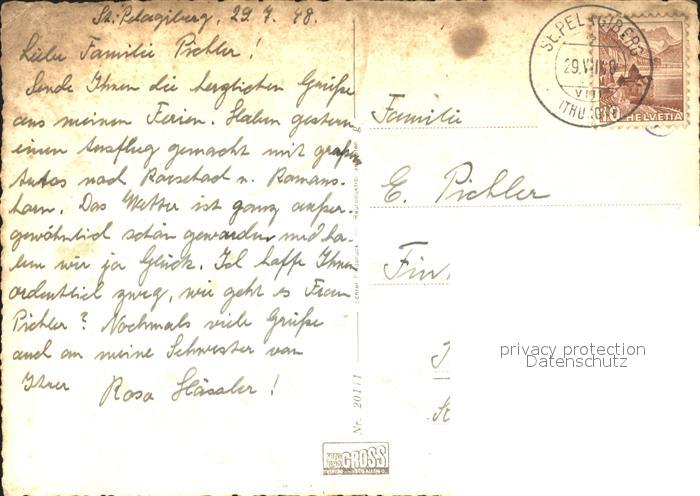 St. Pelagiberg, 29.7.48.
Liebe Familie Pichler!
Sende Ihnen die herzlichen Grüsse
aus meinen Ferien. Haben gestern
einen Ausflug gemacht mit grossen
Autos nach Rorschach u. Romans-
horn. Das Wetter ist ganz ausser-
gewöhnlich schön geworden und ha-
ben wir ja Glück. Ich hoffe Ihnen
ordentlich zweg, wie geht es Frau
Pichler? Nochmals viele Grüsse
auch an meine Schwester von
Ihrer Rosa
ST. PELAGIBERG
29.VII.48
(THURG)
10
HELVETIA
Familie
E. Pichler
Fin
privacy protection
Datenschutz
Nr. 20111
GROSS